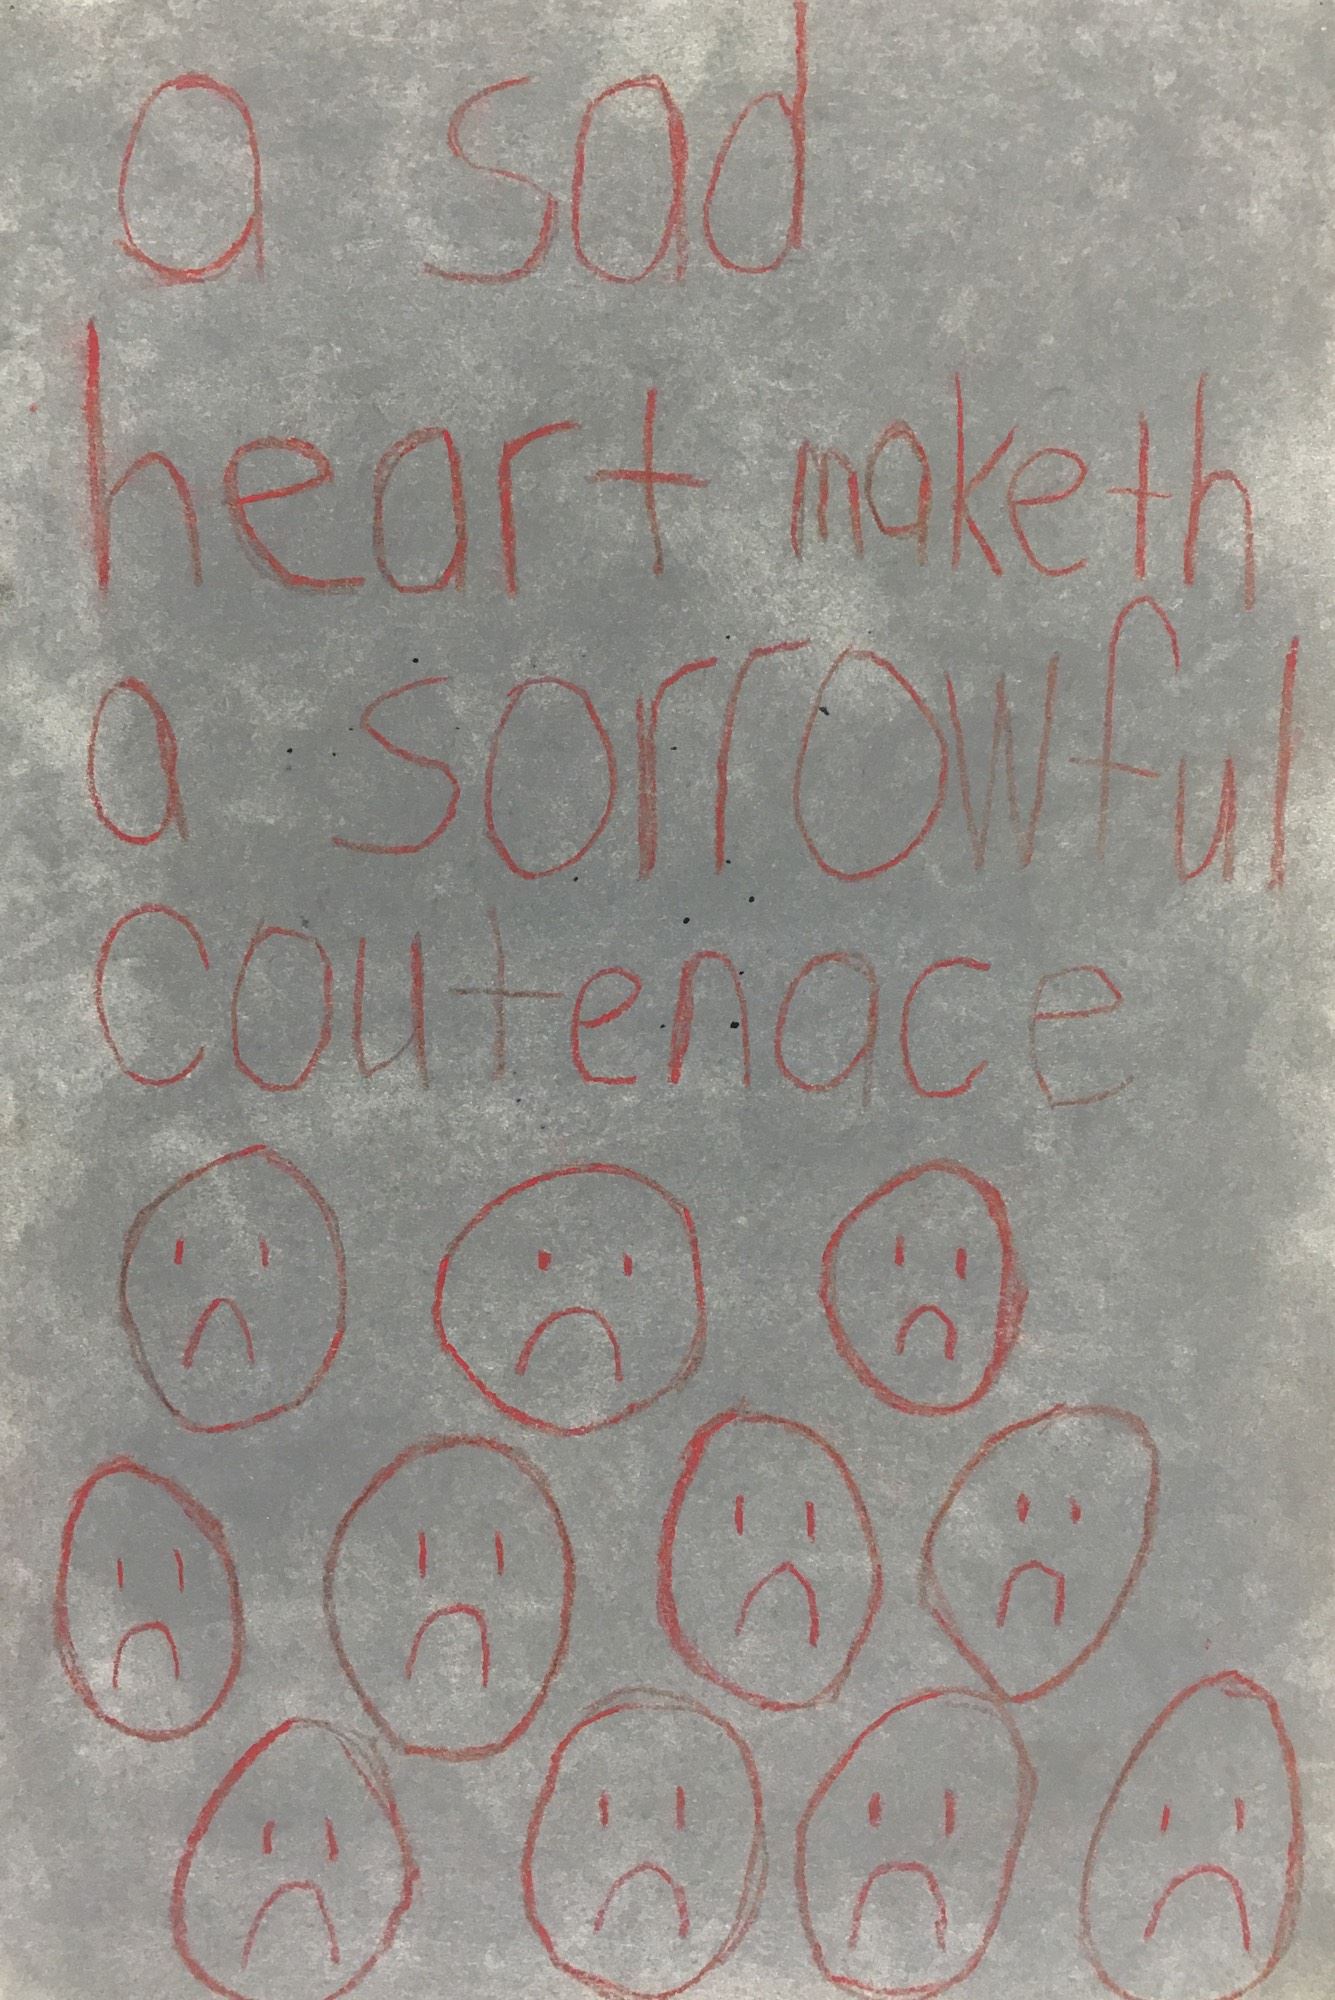 a sad
heart maketh
a sorrowful
coutenace